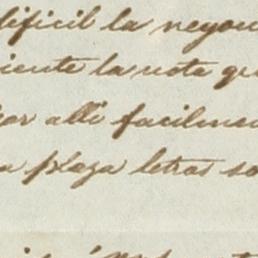 dificil la negoc
iente la nota qu
ar alli facilmen
a plaza letras so